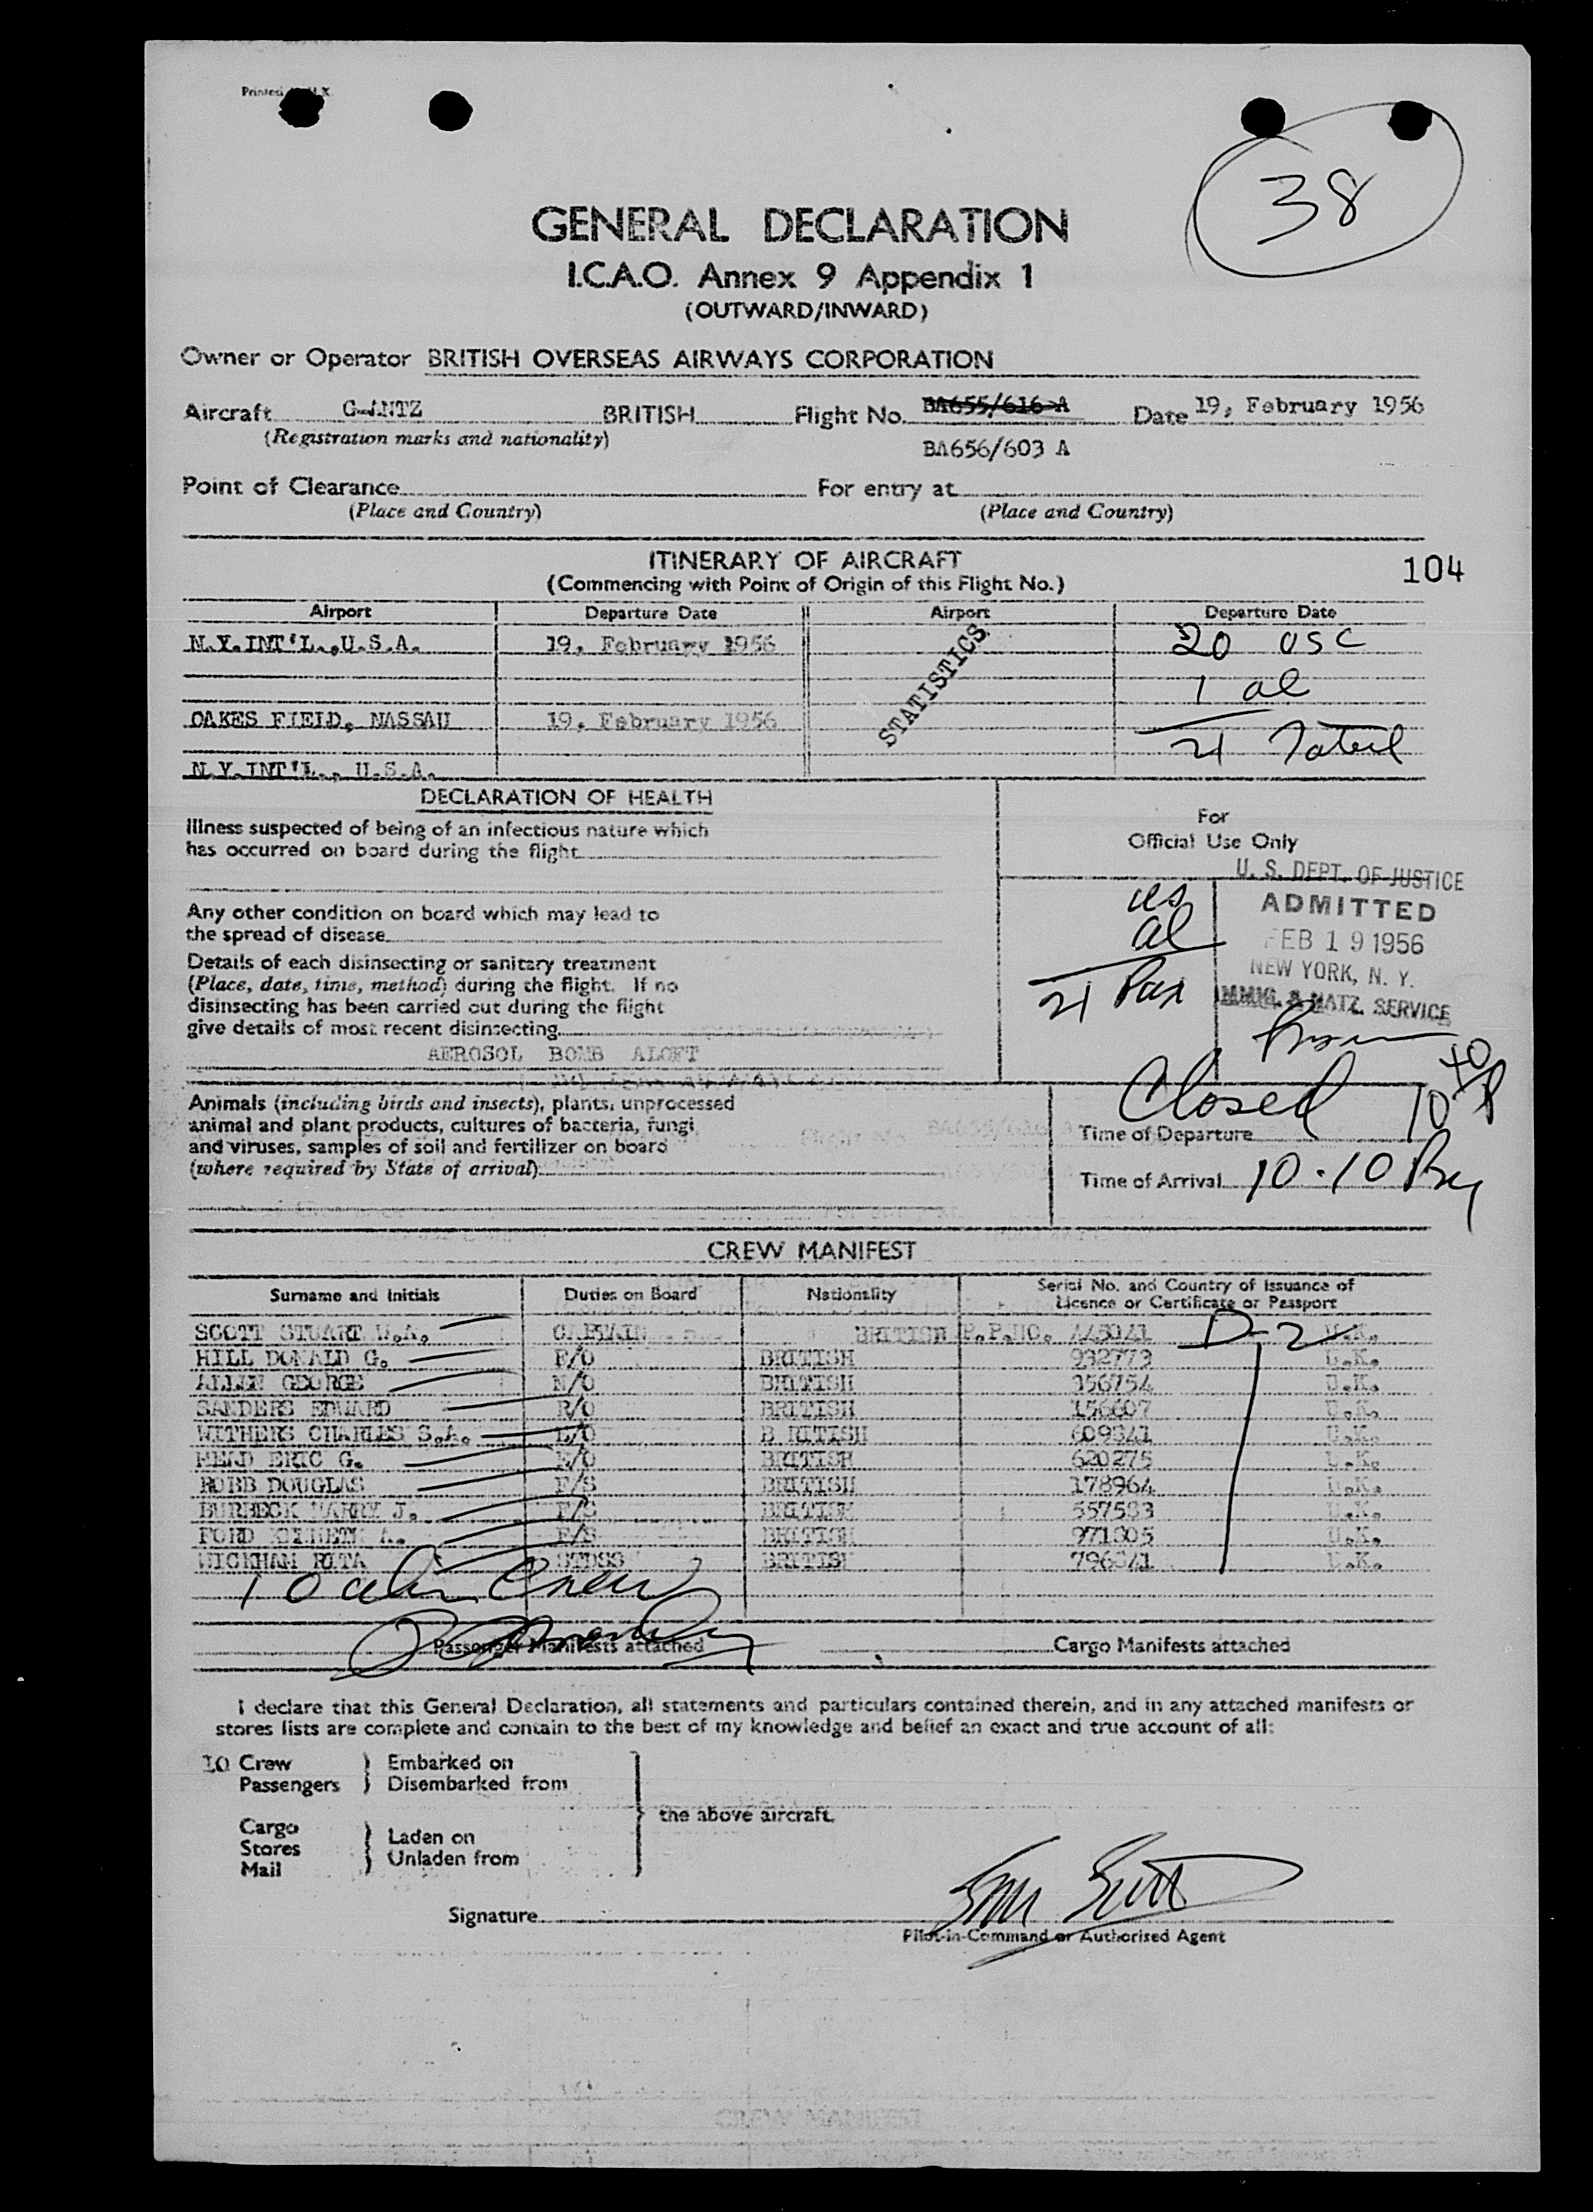 Printed
38
GENERAL DECLARATION
I.C.A.O. Annex 9 Appendix 1
(OUTWARD/INWARD)
Owner or Operator BRITISH OVERSEAS AIRWAYS CORPORATION
Aircraft BRITISH Flight No. BA655/616 A Date 19, February 1956
(Registration marks and nationality) BA656/603 A
Point of Clearance For entry at
(Place and Country) (Place and Country)
ITINERARY OF AIRCRAFT
(Commencing with Point of Origin of this Flight No.) 104
Airport Departure Date Airport Departure Date
N.Y.INT'L.,U.S.A. 19, February 1956 20 USC
STATISTICS
1 al
OAKES FIELD, NASSAU 19, February 1956 21 Total
N.Y.INT'L., U.S.A.
DECLARATION OF HEALTH
Illness suspected of being of an infectious nature which
has occurred on board during the flight
For
Official Use Only
U. S. DEPT. OF JUSTICE
ADMITTED
FEB 19 1956
NEW YORK, N. Y.
IMMIG. & NATZ. SERVICE
us
al
21 Pax
Any other condition on board which may lead to
the spread of disease
Details of each disinsecting or sanitary treatment
(Place, date, time, method) during the flight. If no
disinsecting has been carried out during the flight
give details of most recent disinsecting
AEROSOL BOMB ALOFT
Animals (including birds and insects), plants, unprocessed
animal and plant products, cultures of bacteria, fungi
and viruses, samples of soil and fertilizer on board
(where required by State of arrival)
Closed 10 40 P
Time of Departure
Time of Arrival 10.10
CREW MANIFEST
Surname and Initials Duties on Board Nationality Serial No. and Country of Issuance of
Licence or Certificate or Passport
SCOTT STUART W.A. CAPTAIN BRITISH P.P.NO. D-2 U.K.
HILL DONALD G. F/O BRITISH 932773 U.K.
ALLEN GEORGE N/O BRITISH 356754 U.K.
SANDERS EDWARD R/O BRITISH 156607 U.K.
WITHERS CHARLES S.A. E/O B RITISH 609341 U.K.
HEAD ERIC G. E/O BRITISH 620275 U.K.
ROBB DOUGLAS F/S BRITISH 178964 U.K.
BURBECK HARRY J. F/S BRITISH 557583 U.K.
FORD KENNETH A. F/S BRITISH 971305 U.K.
WICKHAM RITA STDSS BRITISH U.K.
10 alien Crew
Passenger Manifests attached Cargo Manifests attached
I declare that this General Declaration, all statements and particulars contained therein, and in any attached manifests or
stores lists are complete and contain to the best of my knowledge and belief an exact and true account of all:
10 Crew Embarked on
Passengers Disembarked from
the above aircraft.
Cargo
Stores Laden on
Mail Unladen from
Signature
Pilot-in-Command or Authorised Agent